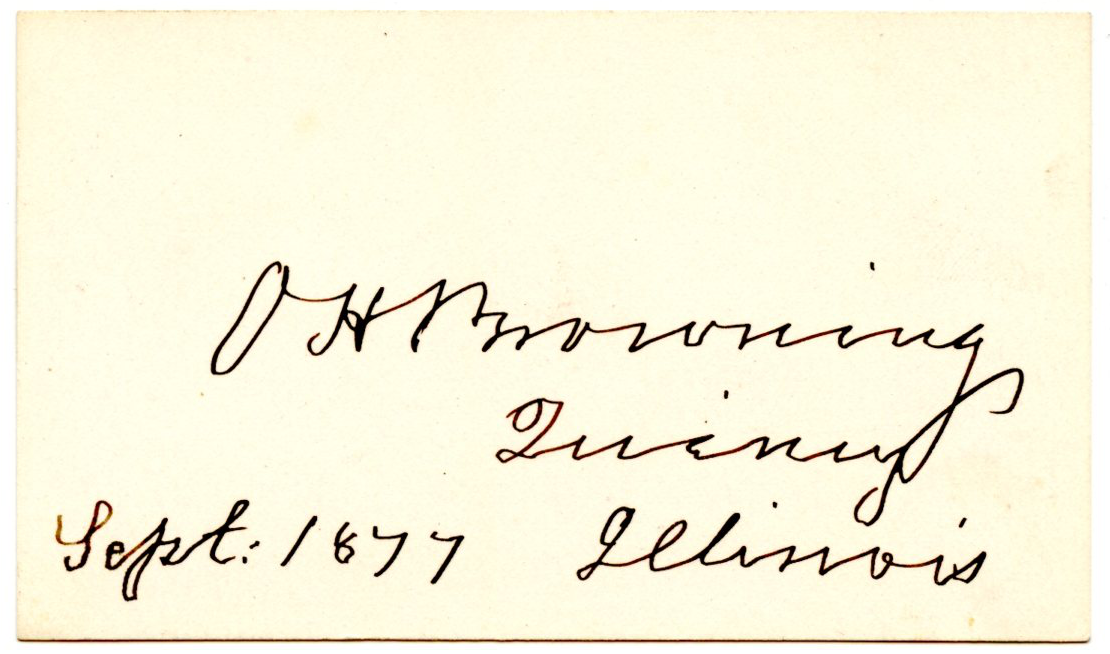 O H Browning
Quincy
Sept: 1877 Illinois